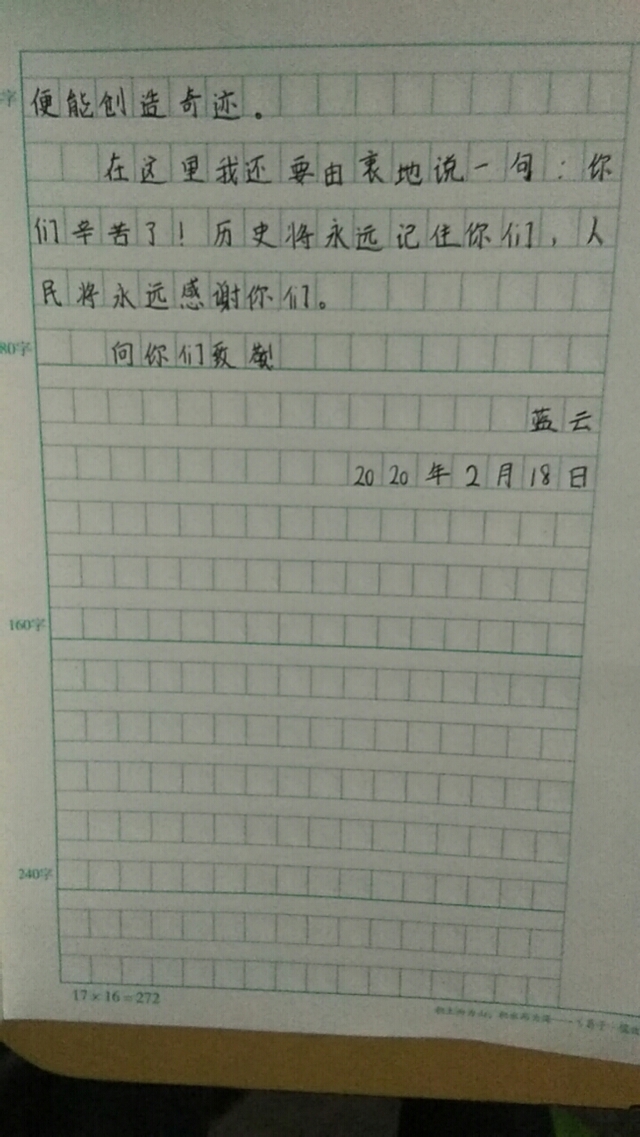 字
便能创造奇迹。
在这里我还要由衷地说一句：你
们辛苦了！历史将永远记住你们，人
民将永远感谢你们。
80字
向你们致敬
蓝云
2020年2月18日
160字
240字
17×16=272